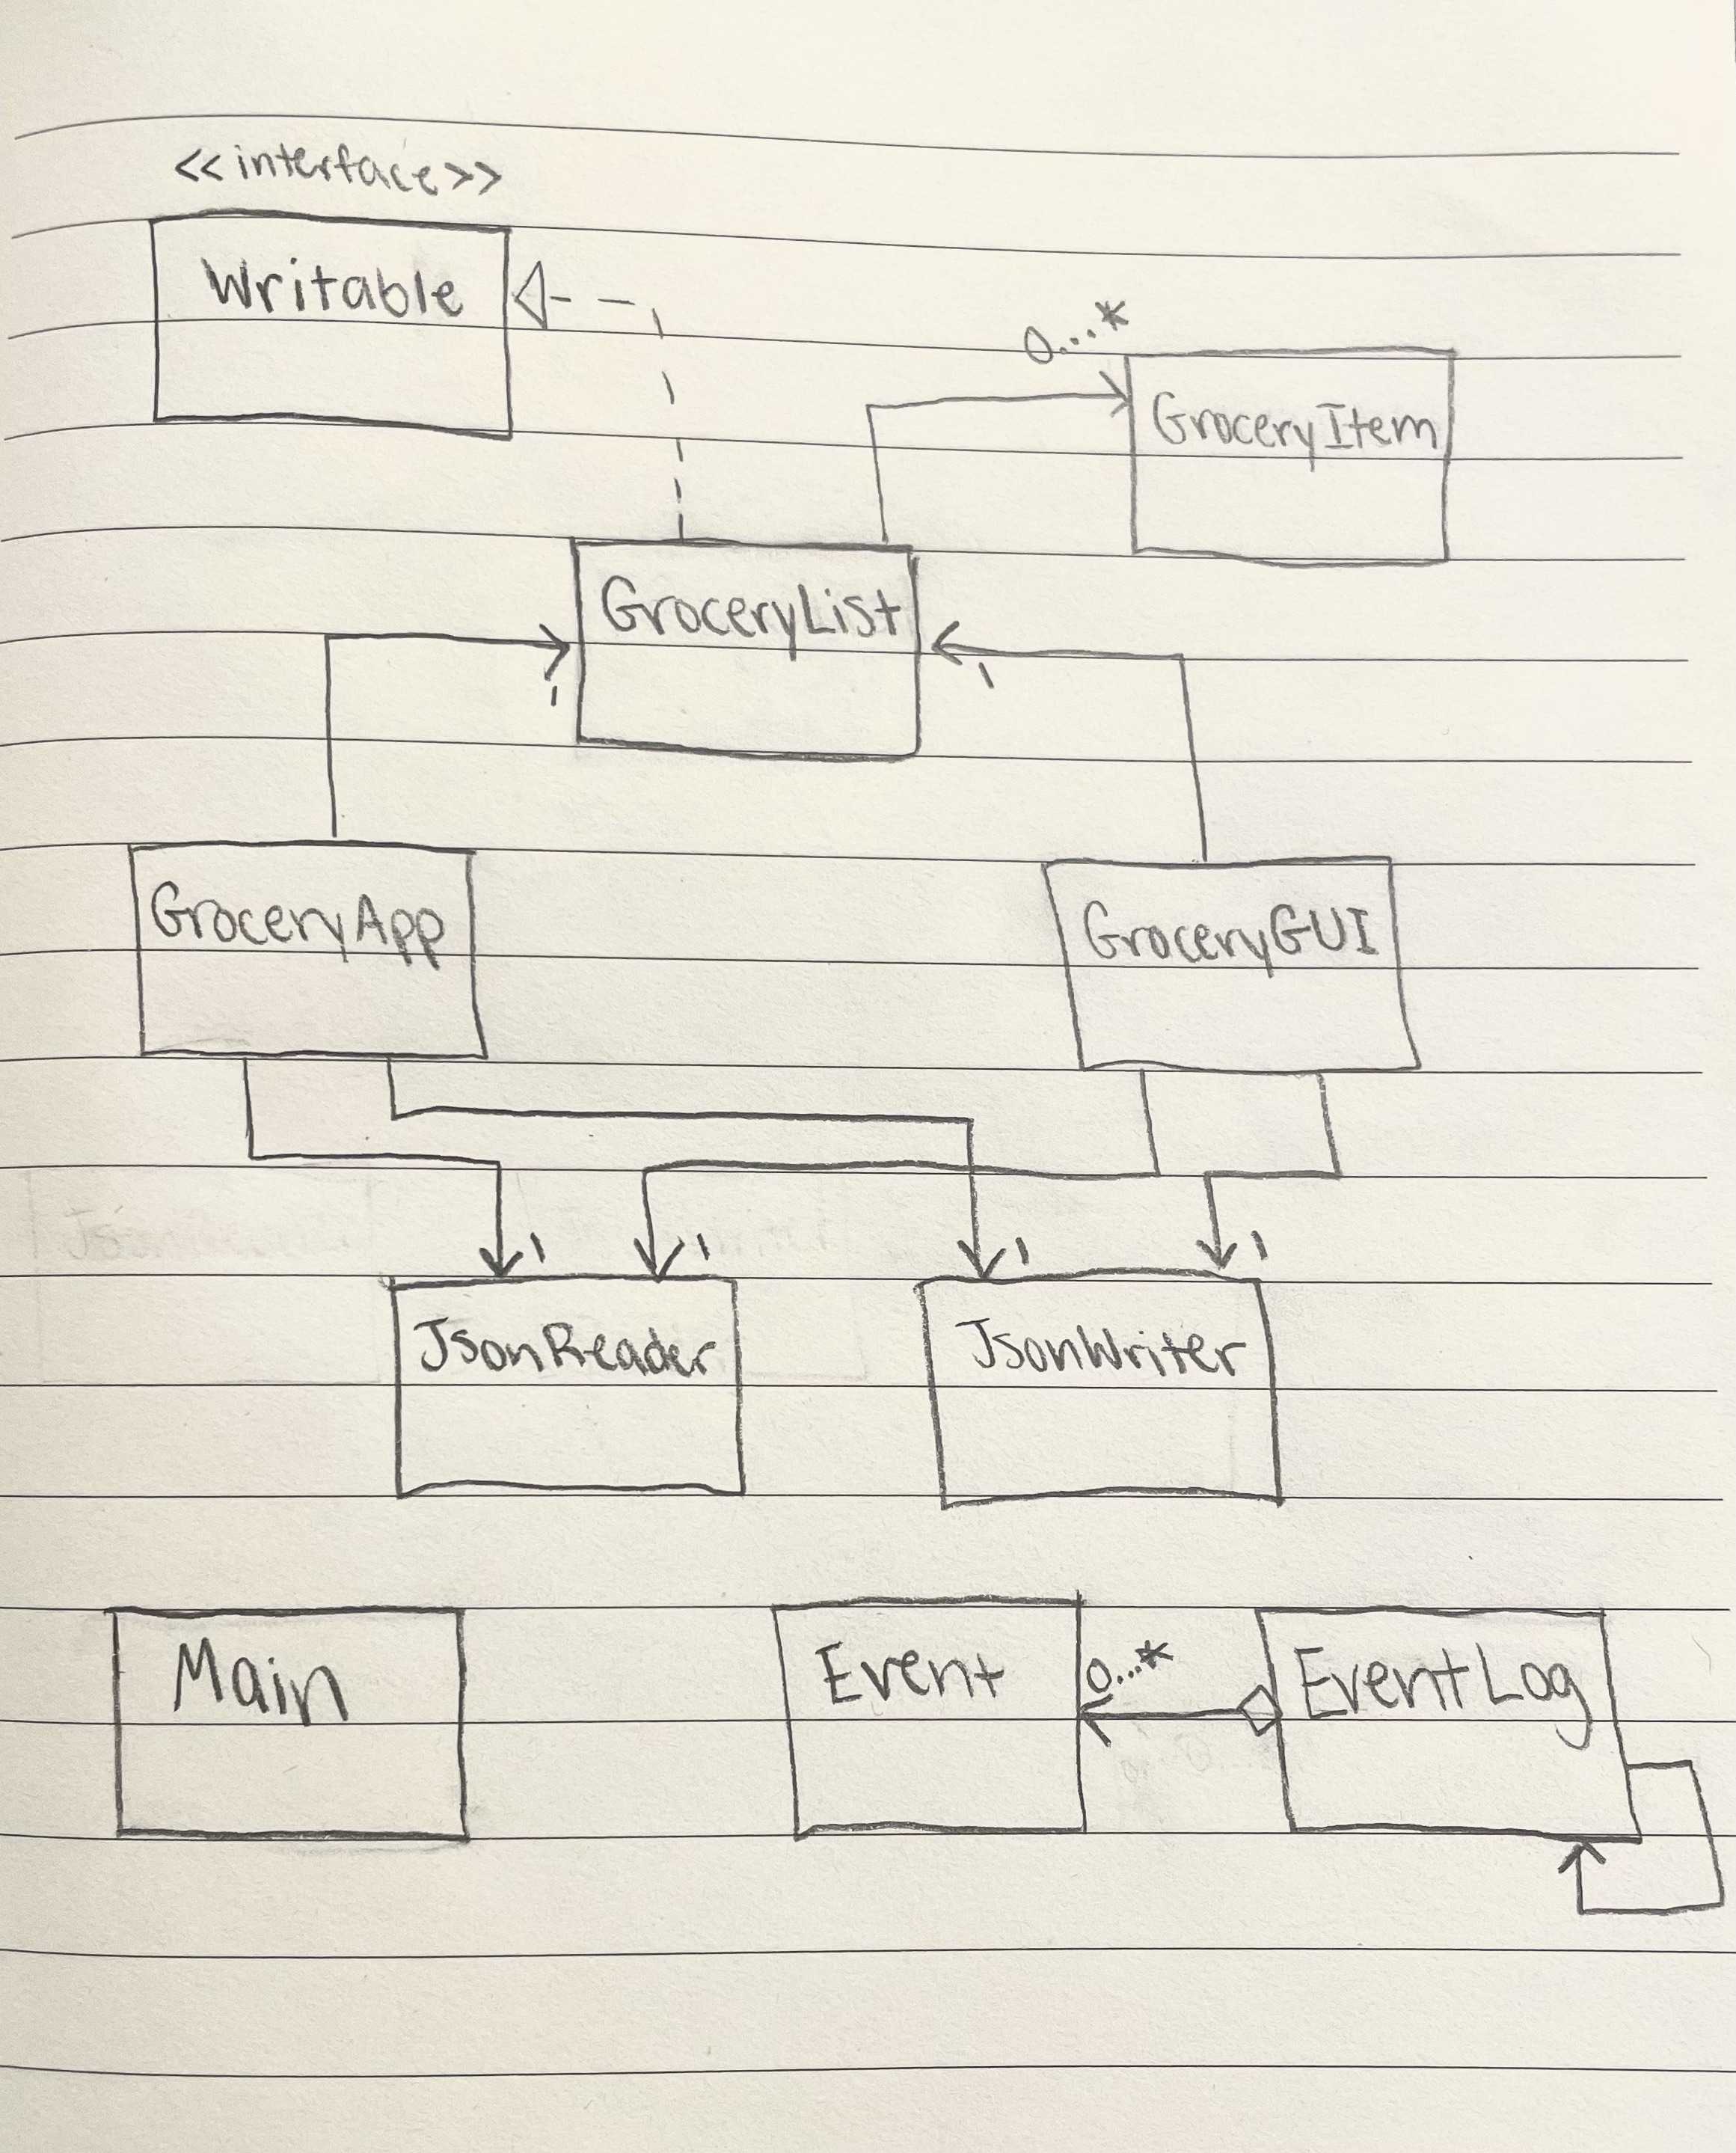 <<interface>>
Writable
0...*
GroceryItem
GroceryList
1
1
GroceryApp
GroceryGUI
1
1
1
1
JsonReader
JsonWriter
Main
Event
0...*
EventLog